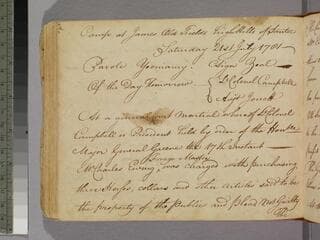 Camp at James Otis Fields high hills of Santee
Saturday 21st July 1781
Parole Yeomanry. C Sign Zeal
Of the Day Tomorrow { Lt Colonel Campbell
Majr
At a general Court Martial whereof Lt Colonel
Campbell is President held by order of the Honble
Major General Greene the 17th Instant
Forage Master
Mr Charles Ewing, was charged with purchasing
three Horses, collars and other articles said to be
the property of the Public and Plead Not Guilty